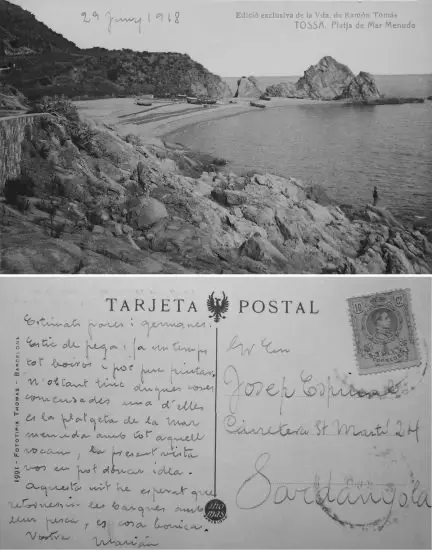 29 Juny 1918
Edició exclusiva de la Vda. de Ramón Tomás
TOSSA. Platja de Mar Menuda
TARJETA POSTAL
1991.- FOTOTIPIA THOMAS - BARCELONA
Estimats pares i germanes:
Estic de pega; fa un temps
tot boirós i pot pintar.
N'obstant tinc dugues coses
començades una d'elles
es la platgeta de la mar
menuda amb tot aquell
rocam, la present vista
vos en pot donar idea.
Aquesta nit he esperat que
retornessin les barques amb
llur pesca, es cosa bonica.
Vostre Marián
Sr En
Josep Espinal
Carretera St Martí 24
Sardanyola
thomas